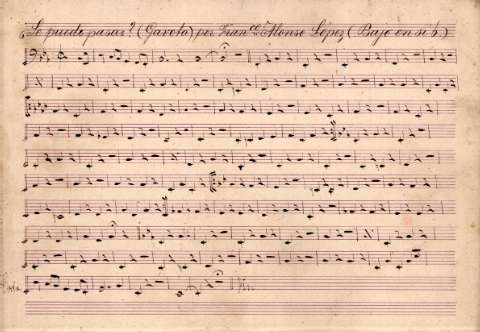 ¿Se puede pasar? (Gavota) por Fran.co Alonso López (Bajo en si b)
Fin